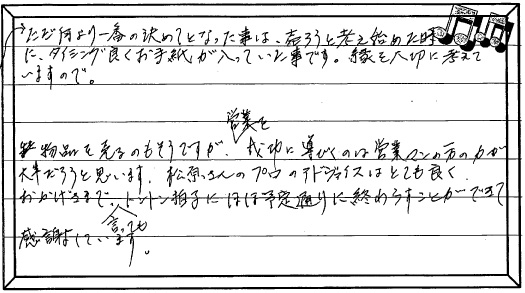 ただ何より一番の決めてとなった事は、売ろうと考え始めた時
に、タイミング良くお手紙が入っていた事です。縁を大切に考えて
いますので。
営業を
物品を売るのもそうですが、成功に導びくのは営業マンの方の力が
大半だろうと思います。松原さんのプロのアドヴァイスはとても良く、
おかげさまで、トントン拍子にほぼ予定通りに終わらすことができて
言っても
感謝しています。